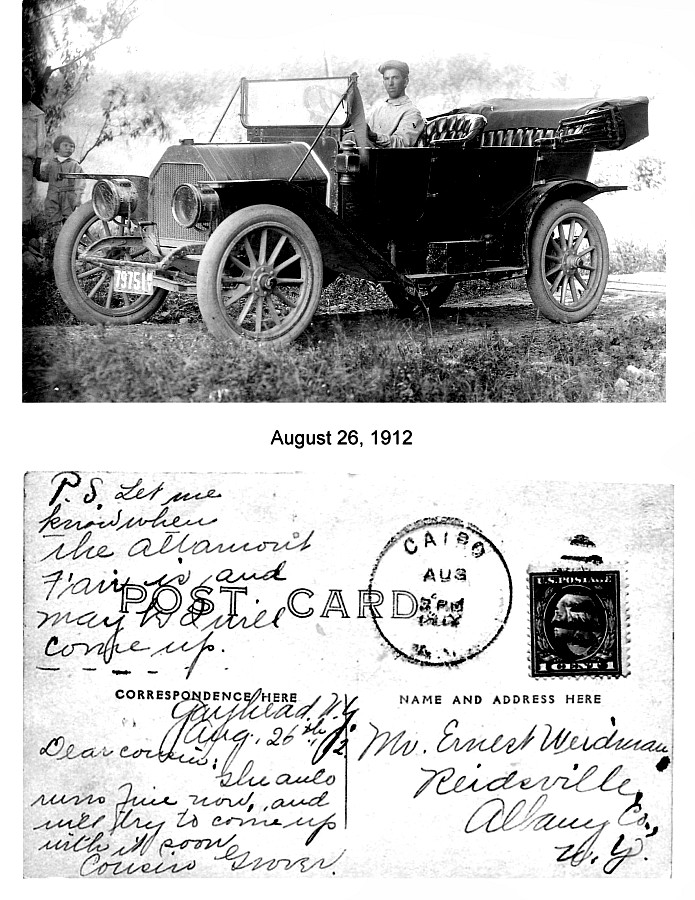 79751
August 26, 1912
P.S. Let me
know when
the Altamont
Fair is, and
may be I will
come up.
POST CARD
CAIRO
AUG
3 PM
1912
N.Y.
U.S. POSTAGE
1 CENT 1
CORRESPONDENCE HERE
NAME AND ADDRESS HERE
Gayhead, N.Y.
Aug. 26th, 12
Dear cousin:
The auto
runs fine now, and
will try to come up
with it soon
Cousin Grover.
Mr. Ernest Weidman
Reidsville,
Albany Co.,
N.Y.